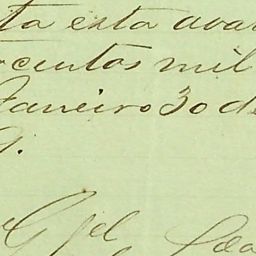 ta esta ava
ocentos mil
Janeiro 30 de
9.